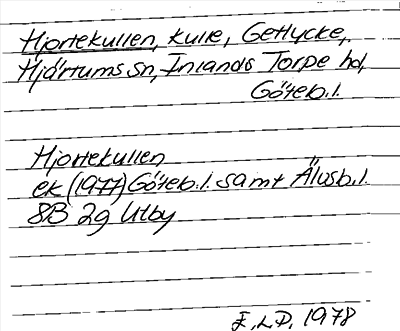 Hjortekullen, kulle, Getlycke,
Hjärtums sn, Inlands Torpe hd,
Göteb.l.
Hjortekullen
ek (1977) Göteb.l. samt Älvsb.l.
8B 2g Utby
E.L.D. 1978